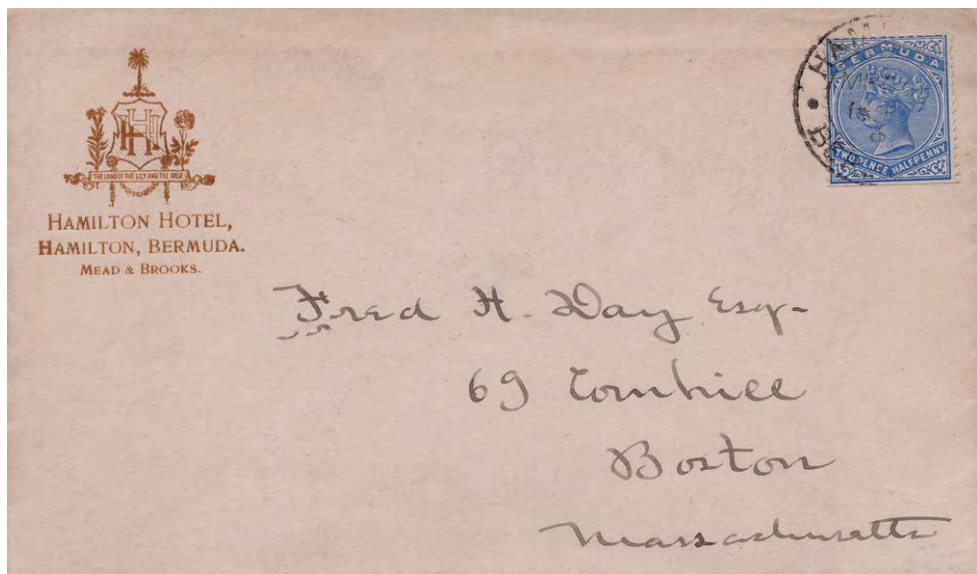 THE LAND OF THE LILY AND THE ROSE
HAMILTON HOTEL,
HAMILTON, BERMUDA.
MEAD & BROOKS.
BERMUDA
TWO PENCE HALFPENNY
Fred H. Day Esq-
69 Cornhill
Boston
Massachusetts